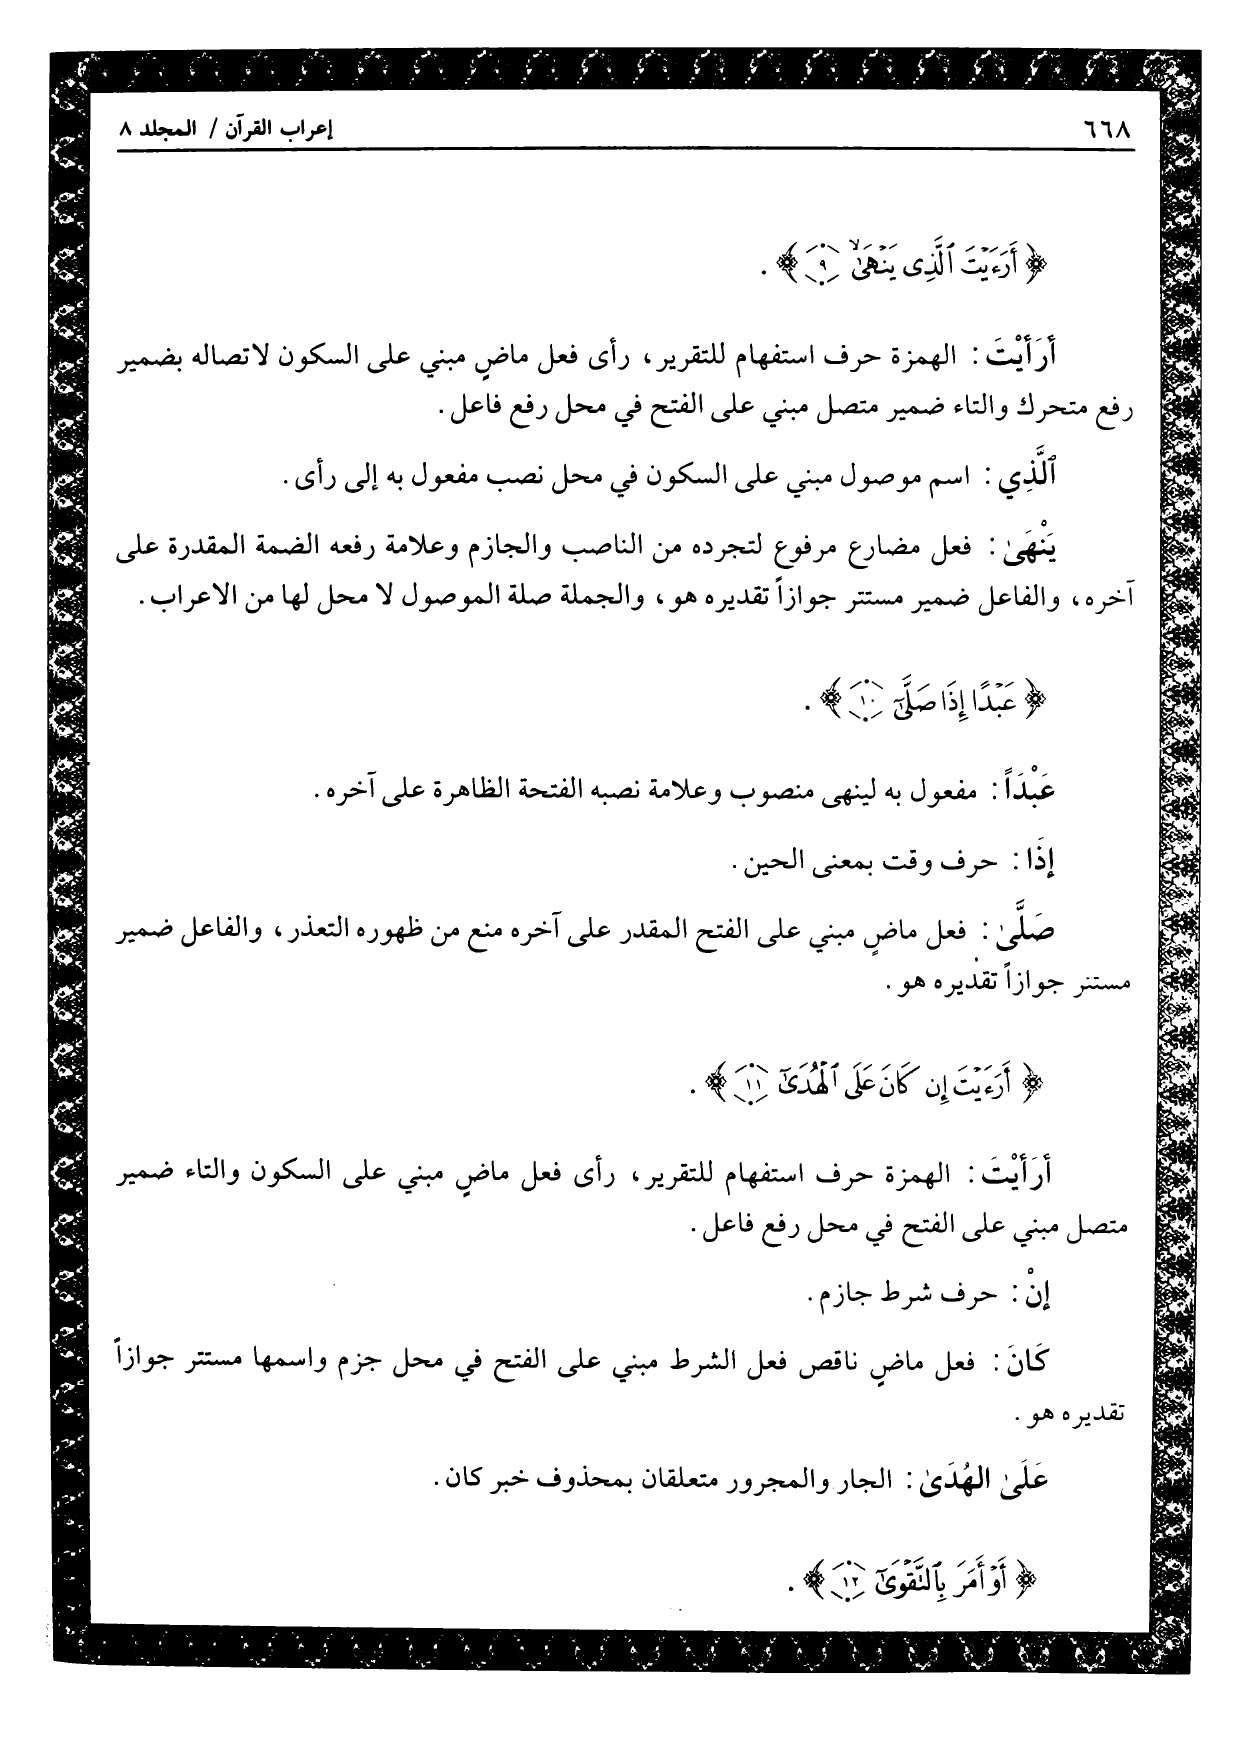 ٦٦٨ إعراب القرآن / المجلد ٨
﴿ أَرَءَيْتَ ٱلَّذِى يَنْهَىٰ ۙ ٩ ﴾ .
أَرَأَيْتَ : الهمزة حرف استفهام للتقرير، رأى فعل ماضٍ مبني على السكون لاتصاله بضمير
رفع متحرك والتاء ضمير متصل مبني على الفتح في محل رفع فاعل.
ٱلَّذِي : اسم موصول مبني على السكون في محل نصب مفعول به إلى رأى.
يَنْهَىٰ : فعل مضارع مرفوع لتجرده من الناصب والجازم وعلامة رفعه الضمة المقدرة على
آخره، والفاعل ضمير مستتر جوازاً تقديره هو، والجملة صلة الموصول لا محل لها من الاعراب.
﴿ عَبْدًا إِذَا صَلَّىٰٓ ١٠ ﴾ .
عَبْدَاً : مفعول به لينهى منصوب وعلامة نصبه الفتحة الظاهرة على آخره.
إِذَا : حرف وقت بمعنى الحين.
صَلَّىٰ : فعل ماضٍ مبني على الفتح المقدر على آخره منع من ظهوره التعذر، والفاعل ضمير
مستتر جوازاً تقديره هو.
﴿ أَرَءَيْتَ إِن كَانَ عَلَى ٱلْهُدَىٰٓ ١١ ﴾ .
أَرَأَيْتَ : الهمزة حرف استفهام للتقرير، رأى فعل ماضٍ مبني على السكون والتاء ضمير
متصل مبني على الفتح في محل رفع فاعل.
إنْ : حرف شرط جازم.
كَانَ : فعل ماضٍ ناقص فعل الشرط مبني على الفتح في محل جزم واسمها مستتر جوازاً
تقديره هو.
عَلَىٰ الهُدَىٰ : الجار والمجرور متعلقان بمحذوف خبر كان.
﴿ أَوْ أَمَرَ بِٱلتَّقْوَىٰٓ ١٢ ﴾ .